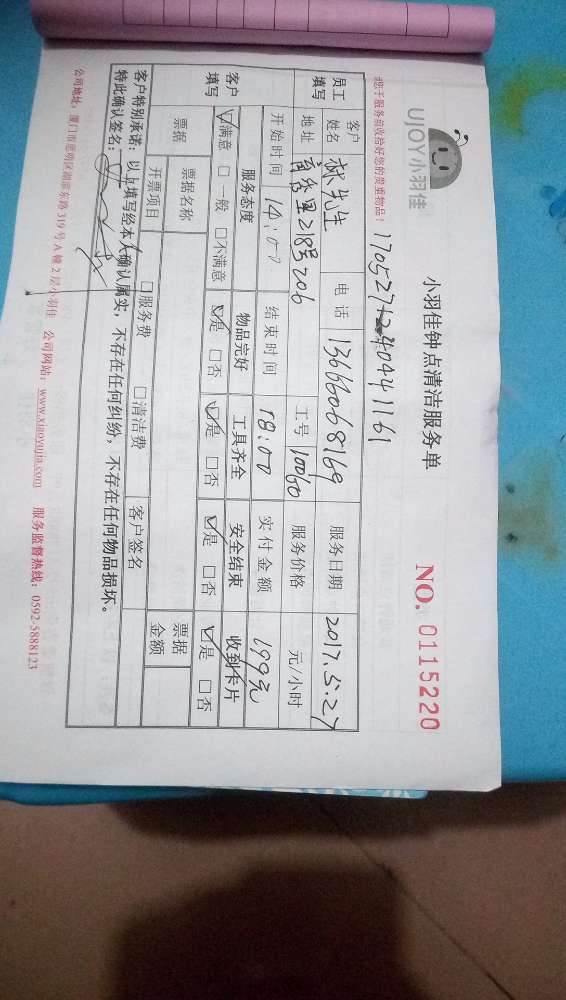 UJOY小羽佳
小羽佳钟点清洁服务单
NO. 0115220
您于服务前收拾好您的贵重物品!
17052712404411 61
员工填写 客户姓名 林先生 电话 13666068169 服务日期 2017.5.27
地址 218号206 工号 10060 服务价格 元/小时
开始时间 14:00 结束时间 18:00 实付金额 199元
客户填写 服务态度 物品完好 工具齐全 安全结束 收到卡片
☑满意 □一般 □不满意 ☑是 □否 ☑是 □否 ☑是 □否 ☑是 □否
票据 票据名称 票据金额
开票项目 □服务费 □清洁费 客户签名
客户特别承诺:以上填写经本人确认属实,不存在任何纠纷,不存在任何物品损坏。
特此确认签名:
公司地址:厦门市思明区湖滨东路319号A幢2层小羽佳 公司网站:www.xiaoyujia.com 服务监督热线:0592-5888123